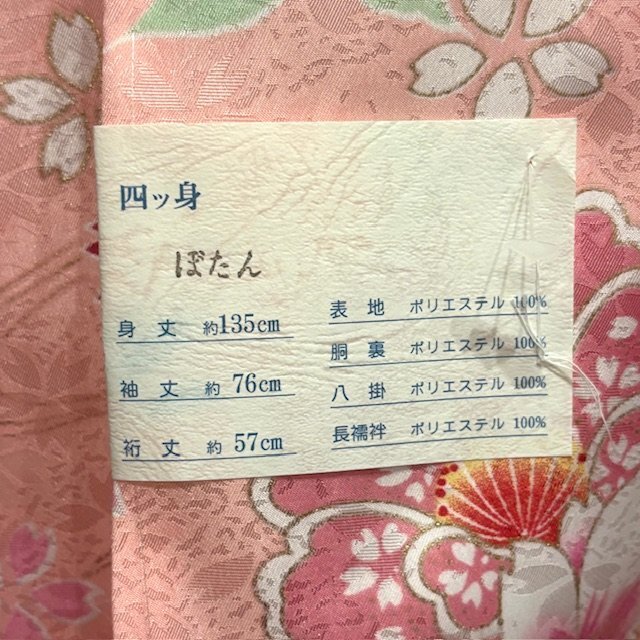 四ッ身
ぼたん
身丈 約135cm
袖丈 約76cm
裄丈 約57cm
表地 ポリエステル 100%
胴裏 ポリエステル 100%
八掛 ポリエステル 100%
長襦袢 ポリエステル 100%